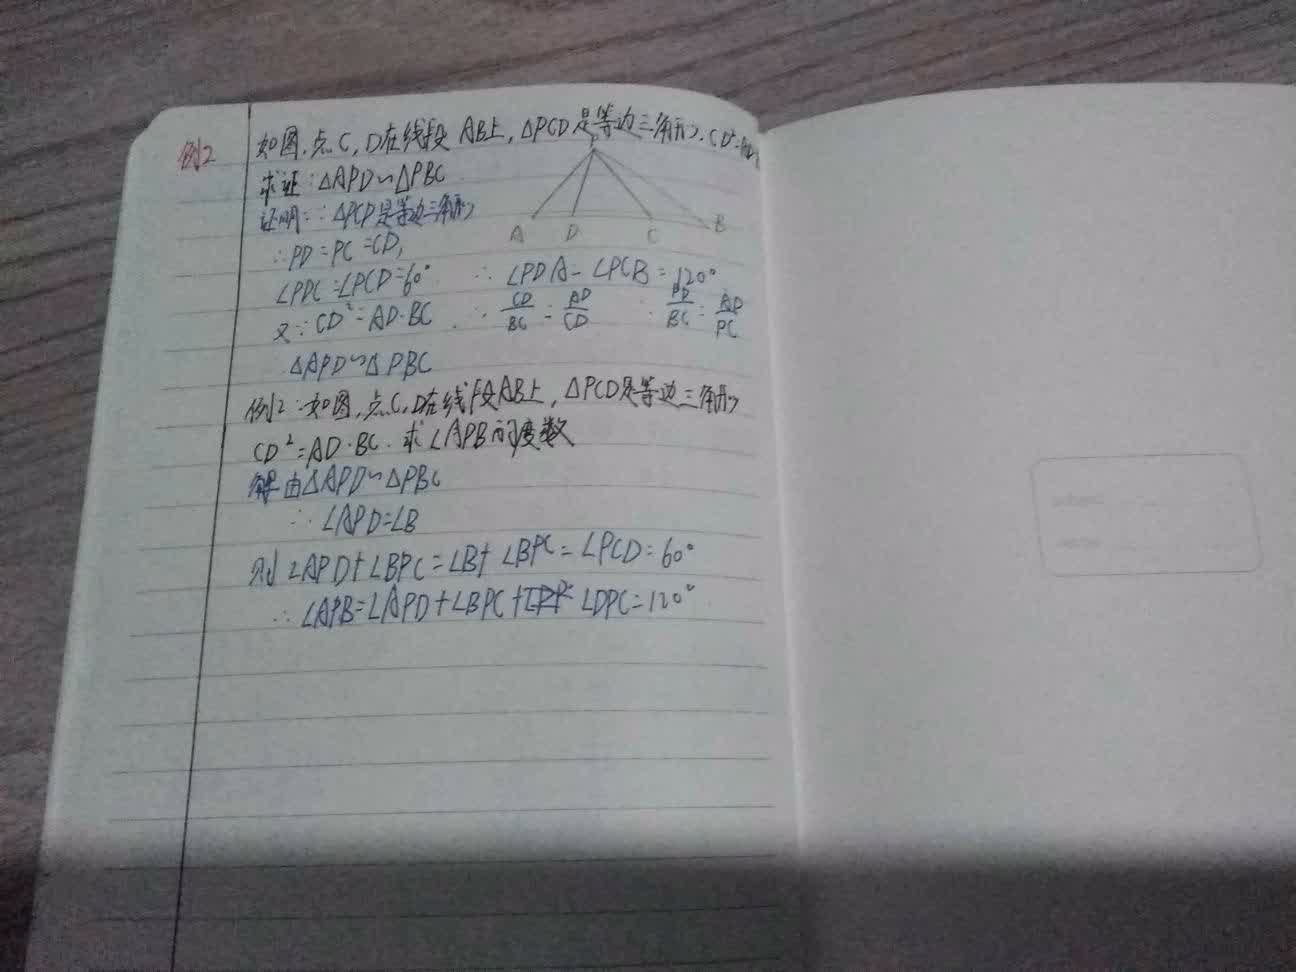 例2 如图,点C,D在线段 AB上,△PCD是等边三角形,CD²=
求证:△APD∽△PBC
P
证明:∵△PCD是等边三角形
A D C B
∴PD=PC=CD,
∠PDC=∠PCD=60° ∴∠PDA=∠PCB=120°
又∵CD²=AD·BC ∴CD/BC=AD/CD ∴PD/BC=AD/PC
△APD∽△PBC
例2:如图,点C,D在线段AB上,△PCD是等边三角形
CD²=AD·BC.求∠APB的度数
解 由△APD∽△PBC
∴∠APD=∠B
则∠APD+∠BPC=∠B+∠BPC=∠PCD=60°
∴∠APB=∠APD+∠BPC+∠DPC=120°